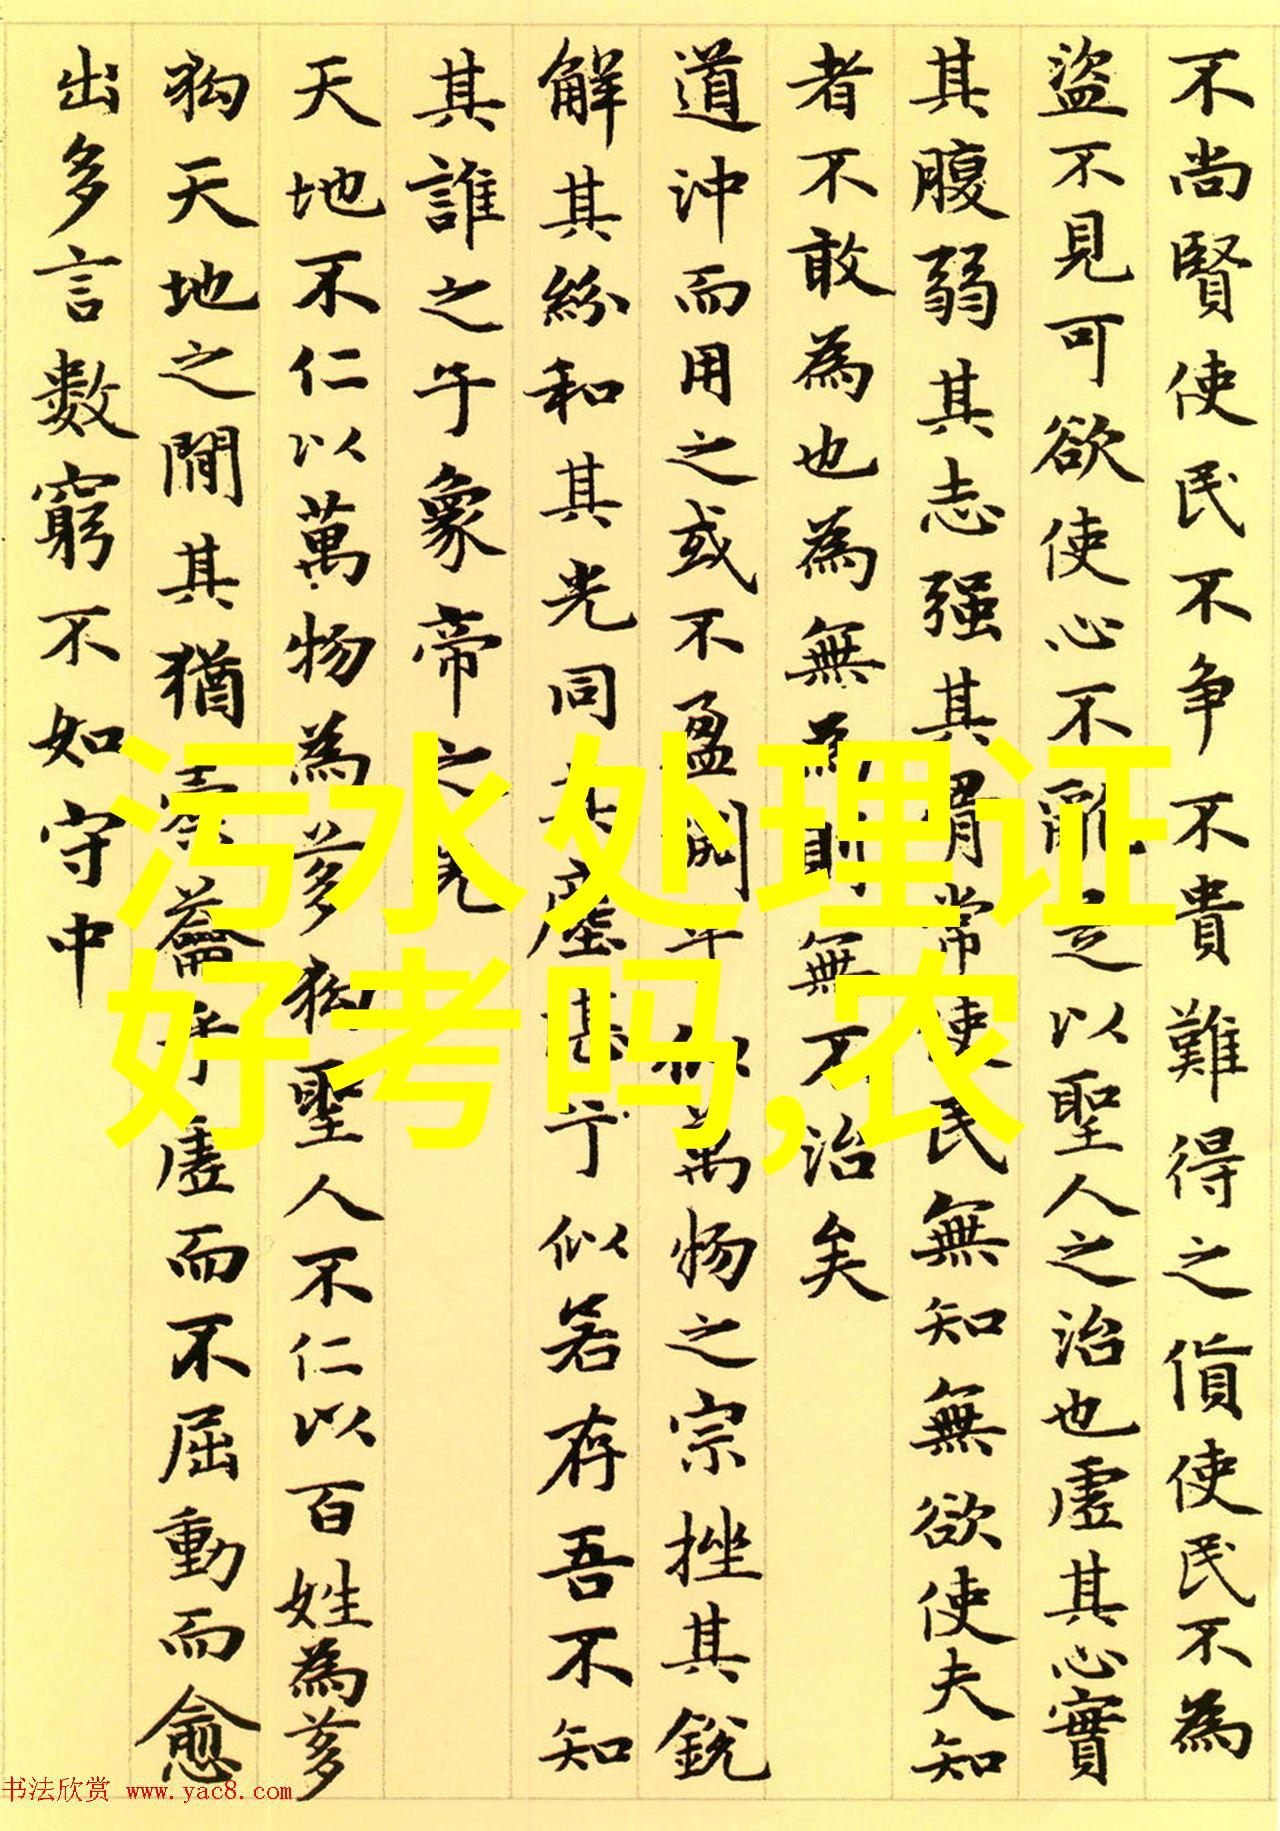 不尚賢使民不争不貴難得之貨使民不為
盜不見可欲使心不亂是以聖人之治也虛其心實
其腹弱其志强其骨常使民無知無欲使夫知
者不敢為也為無為則無不治矣
道沖而用之或不盈淵乎似萬物之宗挫其銳
解其紛和其光同其塵湛兮似若存吾不知
其誰之子象帝之先
天地不仁以萬物為芻狗聖人不仁以百姓為芻
狗天地之間其猶橐籥乎虛而不屈動而愈
出多言數窮不如守中
污水处理证
好考吗,农
书法欣赏 www.yac8.com